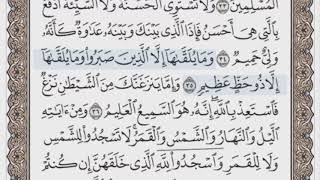 ٱلْمُسْلِمِينَ ٣٣ وَلَا تَسْتَوِى ٱلْحَسَنَةُ وَلَا ٱلسَّيِّئَةُ ٱدْفَعْ
بِٱلَّتِى هِىَ أَحْسَنُ فَإِذَا ٱلَّذِى بَيْنَكَ وَبَيْنَهُۥ عَدَٰوَةٌ كَأَنَّهُۥ
وَلِىٌّ حَمِيمٌ ٣٤ وَمَا يُلَقَّىٰهَآ إِلَّا ٱلَّذِينَ صَبَرُوا۟ وَمَا يُلَقَّىٰهَآ
إِلَّا ذُو حَظٍّ عَظِيمٍ ٣٥ وَإِمَّا يَنزَغَنَّكَ مِنَ ٱلشَّيْطَٰنِ نَزْغٌ
فَٱسْتَعِذْ بِٱللَّهِ إِنَّهُۥ هُوَ ٱلسَّمِيعُ ٱلْعَلِيمُ ٣٦ وَمِنْ ءَايَٰتِهِ
ٱلَّيْلُ وَٱلنَّهَارُ وَٱلشَّمْسُ وَٱلْقَمَرُ لَا تَسْجُدُوا۟ لِلشَّمْسِ
وَلَا لِلْقَمَرِ وَٱسْجُدُوا۟ لِلَّهِ ٱلَّذِى خَلَقَهُنَّ إِن كُنتُمْ